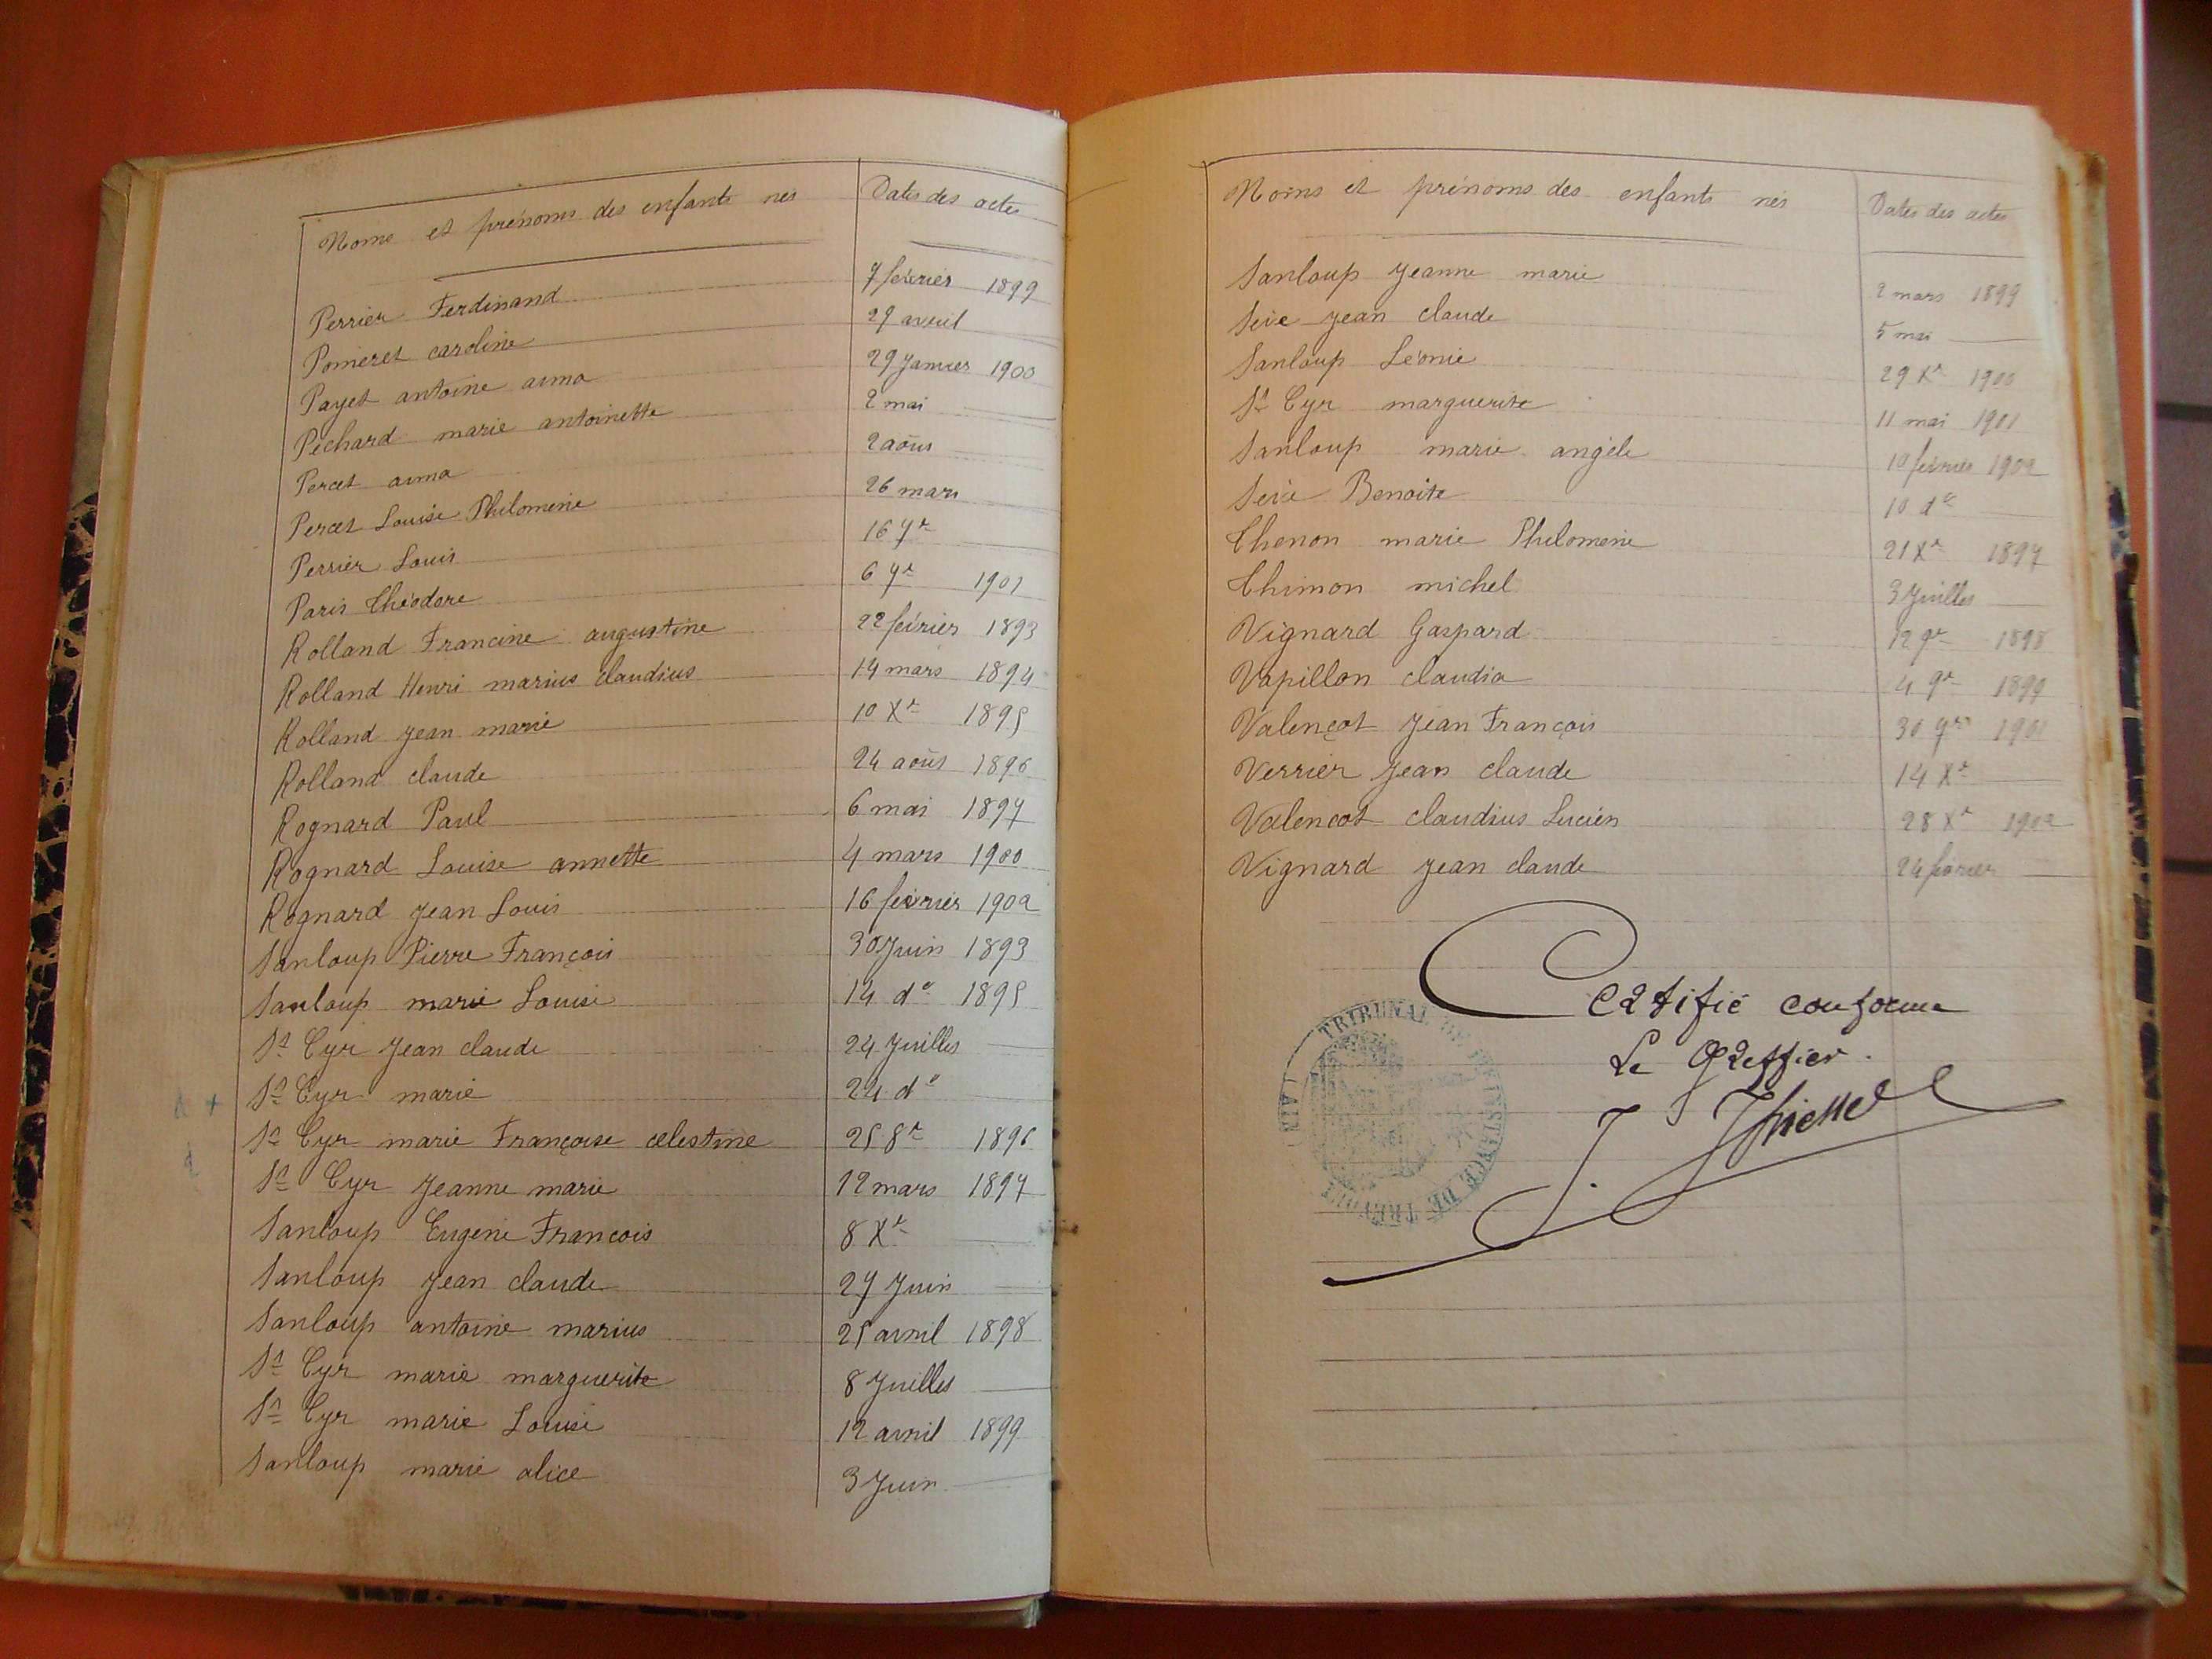 Noms et prénoms des enfants nés Dates des actes
Perrier Ferdinand 7 février 1899
Pomeret caroline 27 avril
Payet antoine aima 29 Janvier 1900
Péchard marie antoinette 2 mai
Percet aima 2 août
Percet Louise Philomène 26 mars
Perrier Louis 16 7re
Paris Théodore 6 7re 1901
Rolland Francine augustine 22 février 1893
Rolland Henri marius claudius 14 mars 1894
Rolland Jean marie 10 Xre 1895
Rolland claude 24 août 1896
Rognard Paul 6 mai 1897
Rognard Louise annette 4 mars 1900
Rognard Jean Louis 16 février 1902
Sanloup Pierre François 30 Juin 1893
Sanloup marie Louise 14 do 1895
St Cyr Jean claude 24 Juillet
St Cyr marie 24 do
St Cyr marie Françoise celestine 25 8re 1896
St Cyr Jeanne marie 12 mars 1897
Sanloup Eugène François 8 Xre
Sanloup Jean claude 27 Juin
Sanloup antoine marius 25 avril 1898
St Cyr marie marguerite 8 Juillet
St Cyr marie Louise 12 avril 1899
Sanloup marie alice 3 Juin
Noms et prénoms des enfants nés Dates des actes
Sanloup Jeanne marie 2 mars 1899
Sève Jean claude 5 mai
Sanloup Léonie 29 Xre 1900
St Cyr marguerite 11 mai 1901
Sanloup marie angèle 10 février 1902
Sève Benoite 10 do
Thenon marie Philomène 21 Xre 1897
Thimon michel 3 Juillet
Vignard Gaspard 12 9re 1898
Vapillon claudia 4 9re 1899
Valençot Jean François 30 1901
Verrier Jean claude 14 Xre
Valencot claudius Lucien 28 Xre 1902
Vignard Jean claude 24 février
Certifié conforme
Le Greffier
TRIBUNAL DE 1re INSTANCE DE TREVOUX (AIN)